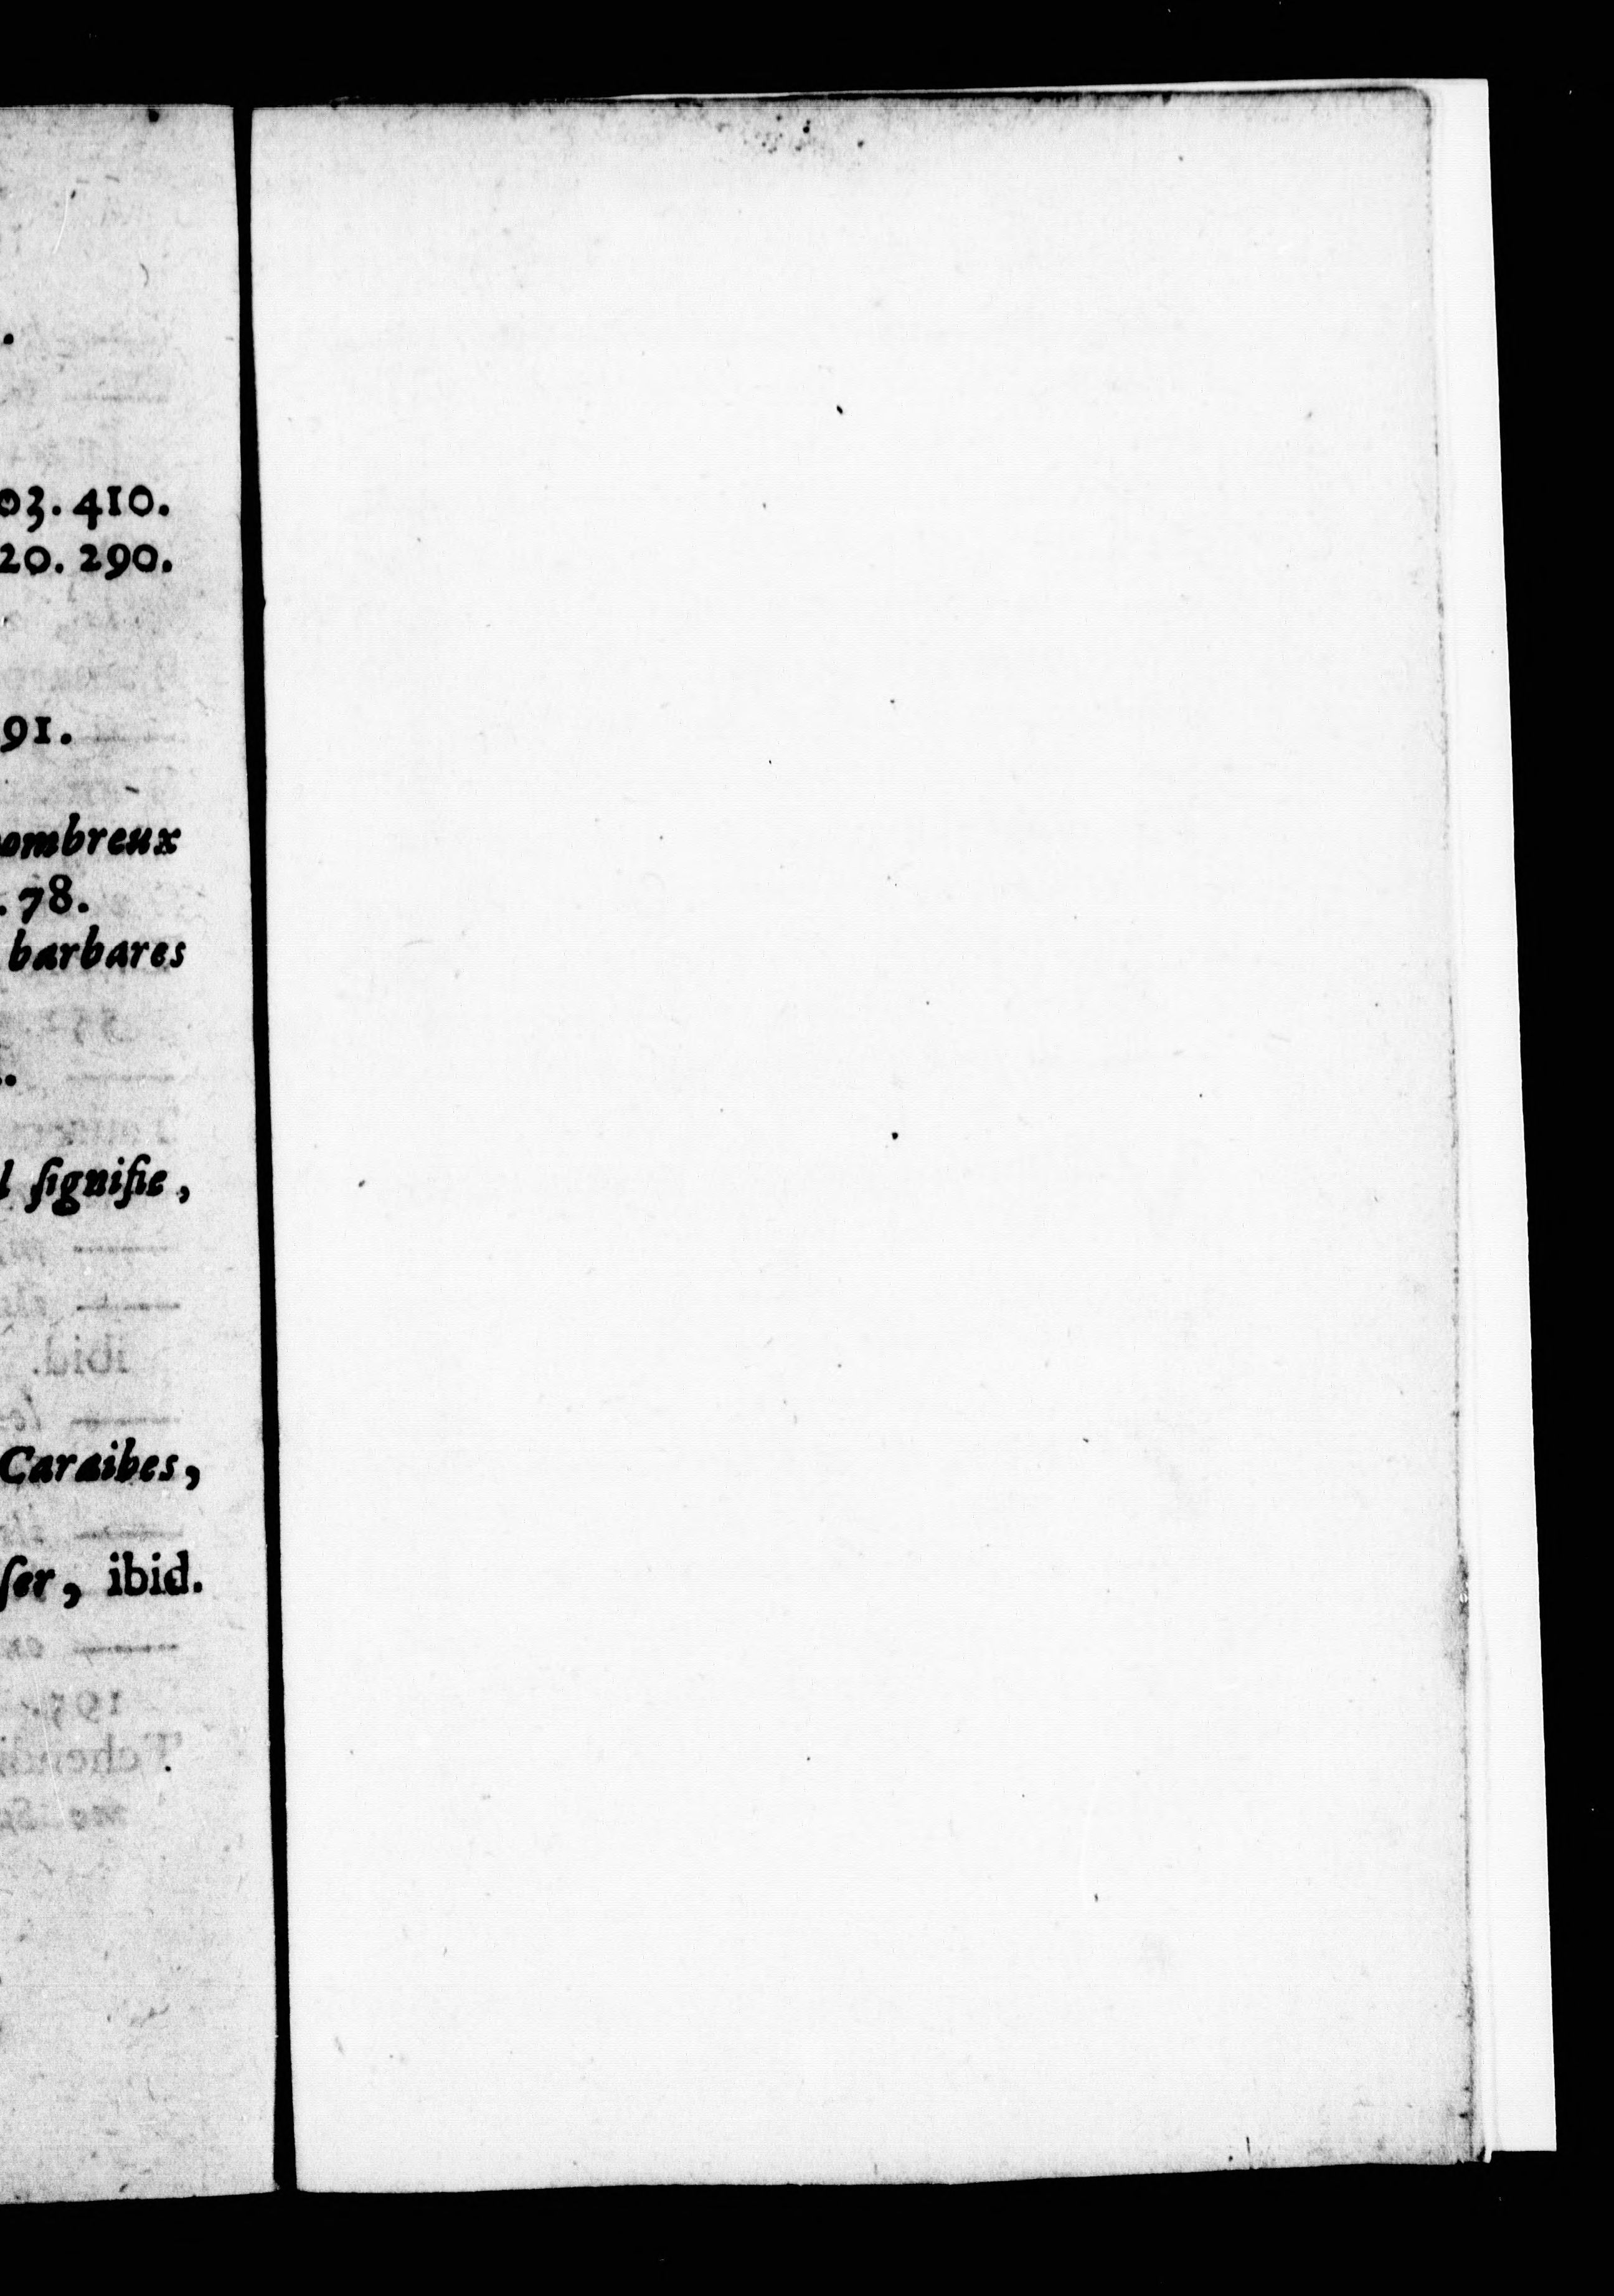 .
03. 410.
20. 290.
91.
ombreux
. 78.
barbares
.
l ſignifie,
Caraibes,
ſer, ibid.